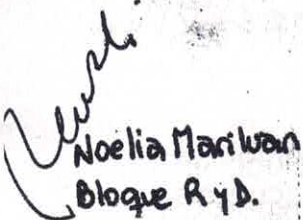 Noelia Mariluan
Bloque R y D.